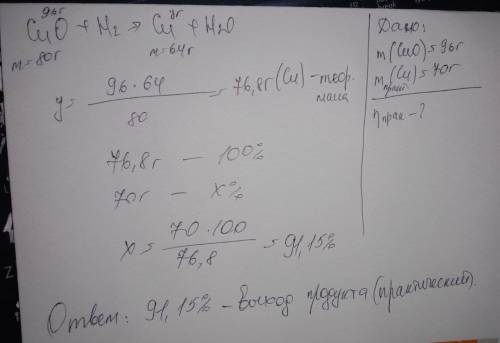 96г уг
CuO + H₂ = Cu + H₂O
m=80г m=64г
y = 96·64 / 80 = 76,8г (Cu) - теор. масса
76,8г — 100%
70г — x%
x = 70·100 / 76,8 = 91,15%
Ответ: 91,15% - выход продукта (практический).
Дано:
m(CuO) = 96г
m практ (Cu) = 70г
η прак - ?